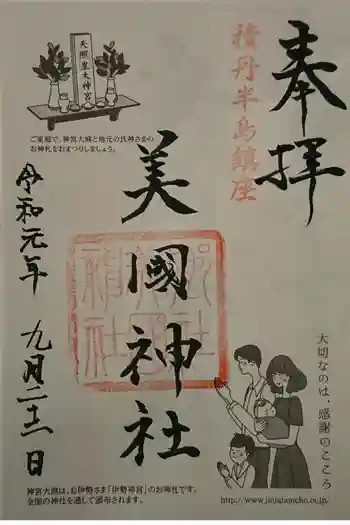 奉拝
積丹半島鎮座
美國神社
令和元年 九月二十二日
天照皇大神宮
ご家庭で、神宮大麻と地元の氏神さまの
お神札をおまつりしましょう。
大切なのは、感謝のこころ
神宮大麻は、お伊勢さま「伊勢神宮」のお神札です。
全国の神社を通して頒布されます。
http://www.jinjahoncho.or.jp